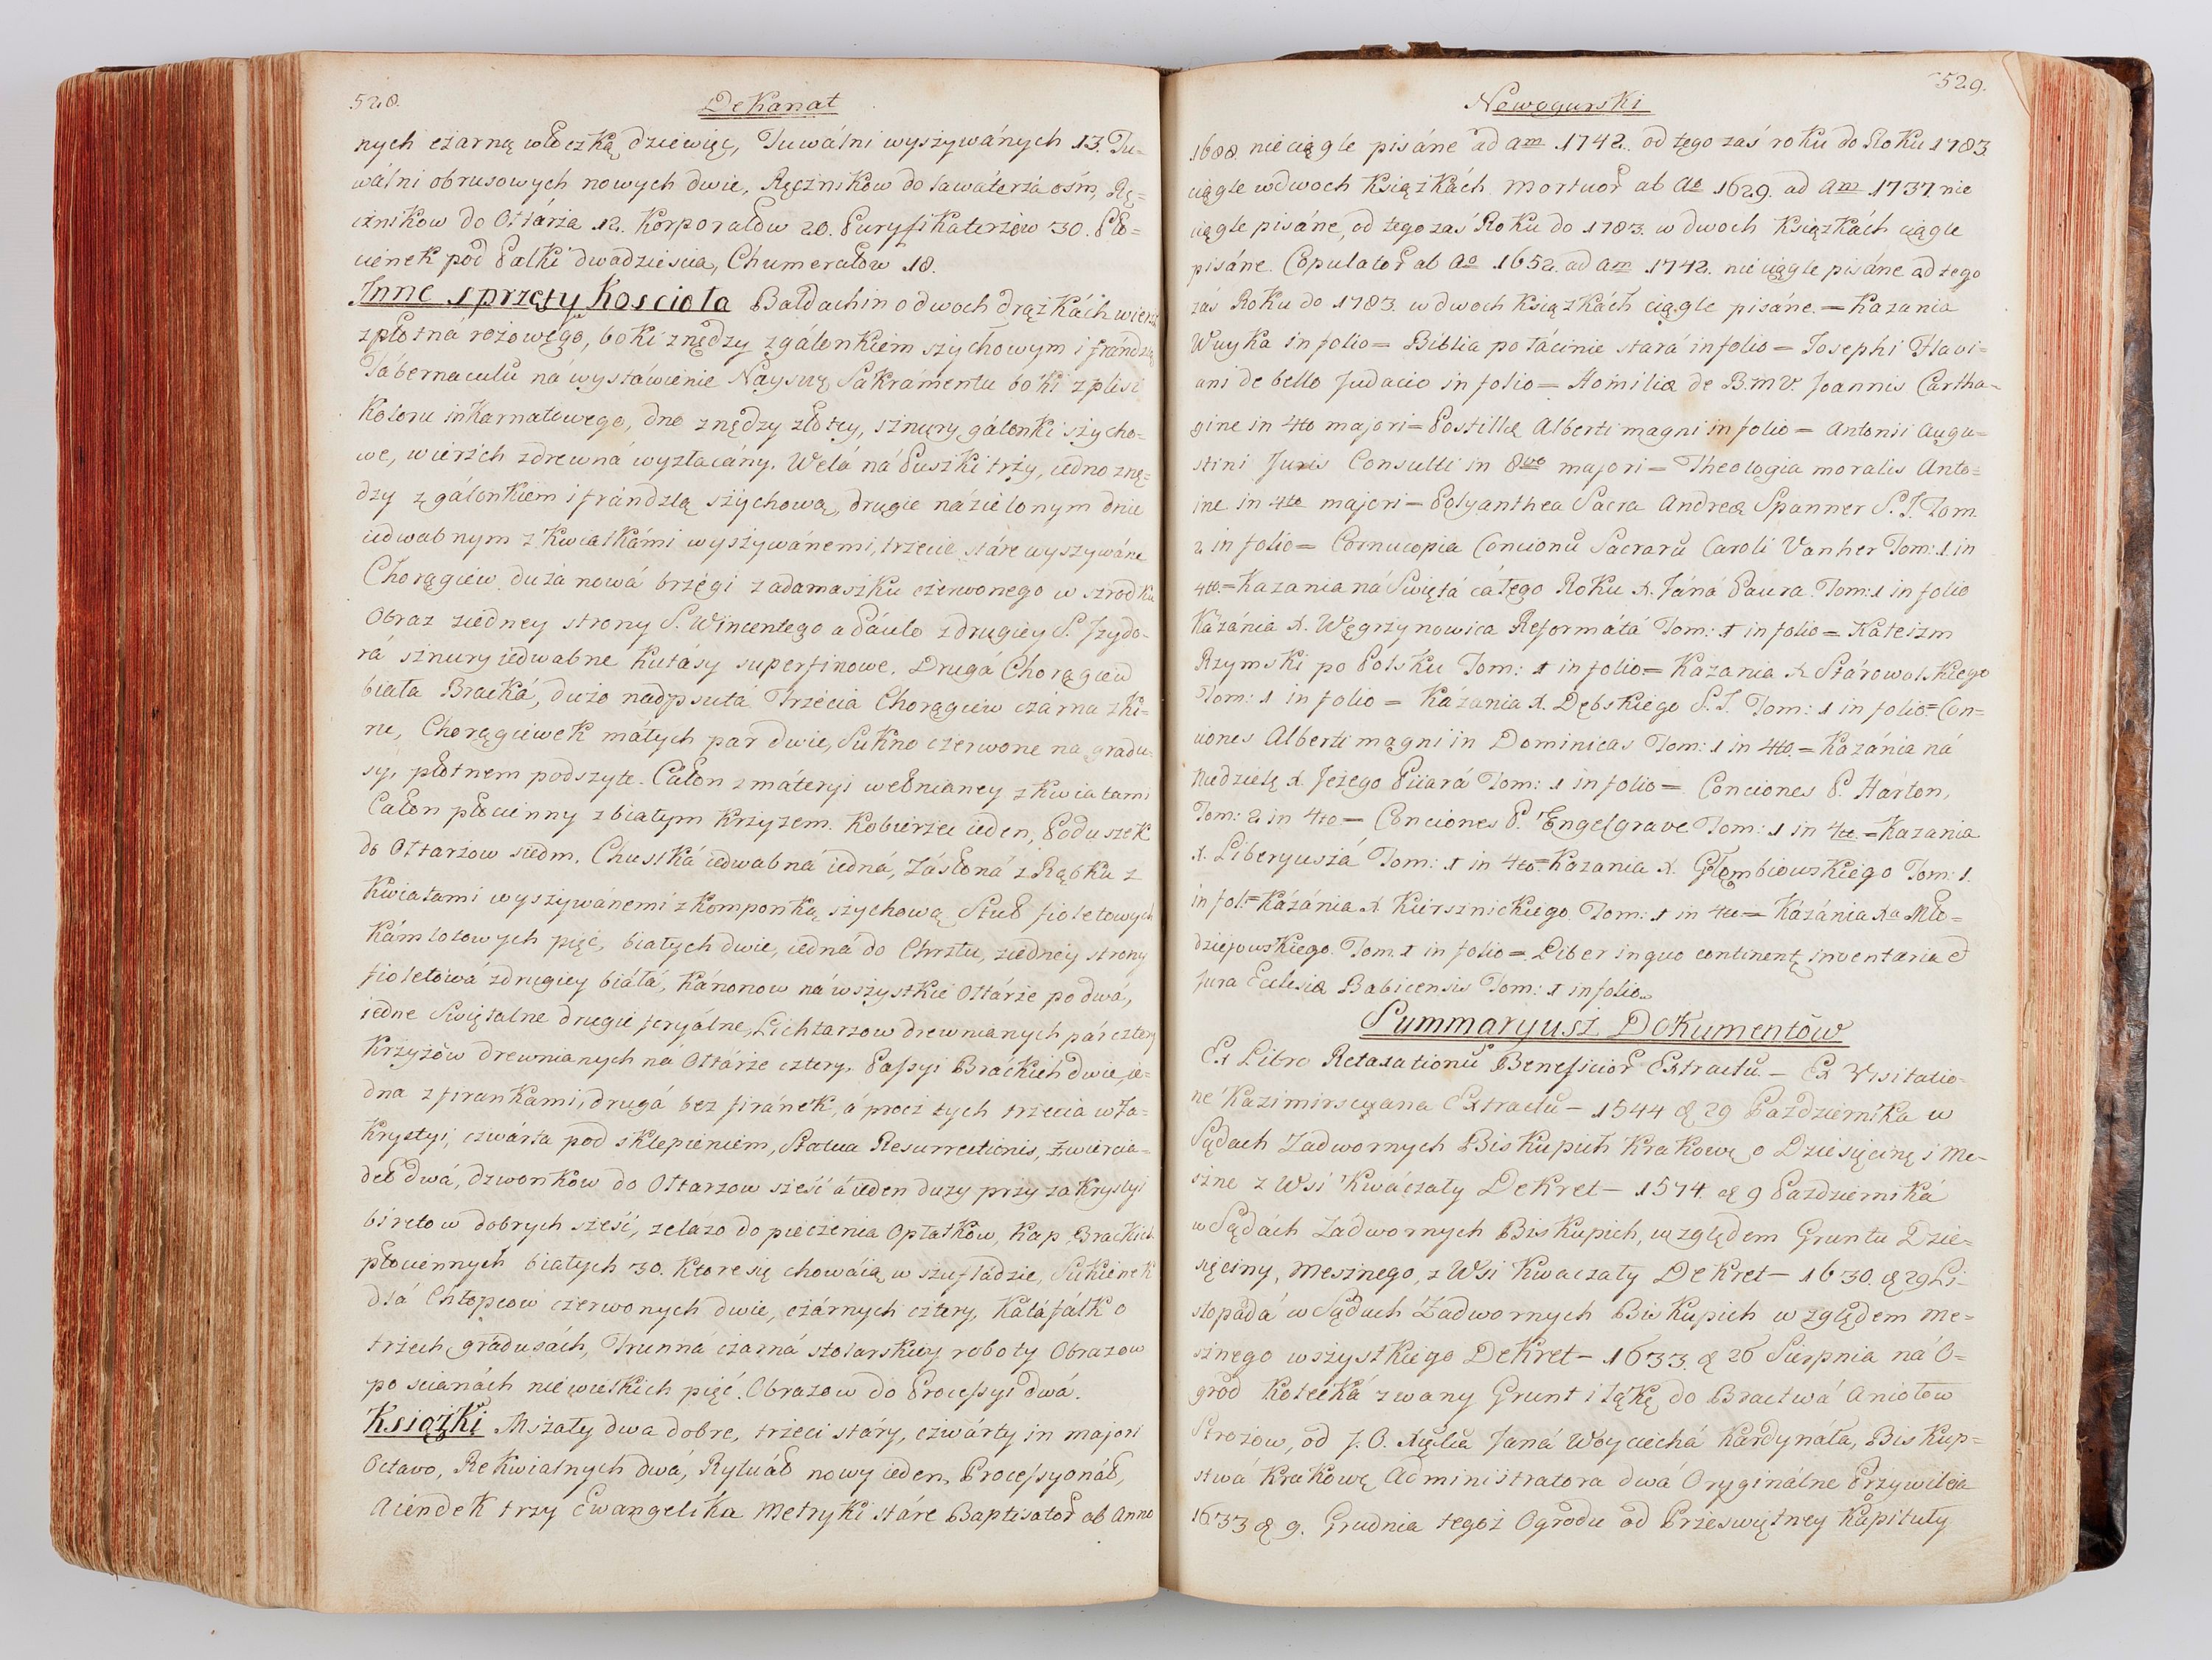 528.
DeKanat
nych czarną włoczką dziewięc, Tuwálni wyszywánych 13. Tu-
wálni obrusowych nowych dwie, Ręcznikow do lawáterzá ośm, Rę-
cznikow do Ołtárza 12. Korporałow 20. Puryfikaterzow 30. Pło-
cienek pod Palki dwadziescia, Chumerałow 18.
Inne sprzęty Koscioła Bałdachin o dwoch drązkách wierz
z płotna rozowego, boki z nędzy z gálonkiem szychowym i frándzlą
Tábernaculū ná wystáwienie Nayswę Sakrámentu boki z plisi
Koloru inkarnatowego, dno z nędzy złotey, sznury, gálonki szycho-
we, wierzch z drewná wyzłacány. Welá ná Puszki trzy, iedno z nę-
dzy z gálonkiem i frándzlą szychową, drugie ná zielonym dnie
iedwabnym z Kwiatkámi wyszywánemi, trzecie stáre wyszywáne
Chorągiew duza nowá brzegi z adamaszku czerwonego w szrodku
Obraz ziedney strony S. Wincentego a Páulo z drugiey S. Jzydo-
rá sznury iedwabne Kutásy superfinowe. Drugá Chorągiew
biała Bracká, duzo nadpsutá Trzecia Chorągiew czárna z Ki-
ru, Chorągiewek máłych par dwie, Sukno czerwone na gradu-
sy, płotnem podszyte. Całon z máteryi wełnianey z Kwiatami
Całon płocienny z białym Krzyzem. Kobierzec ieden, Poduszek
do Ołtarzow siedm. Chustká iedwabná iedná, Zásłoná z Rąbku z
Kwiatami wyszywánemi z Komponką szychową Stuł fioletowych
Kámlotowych pięć, białych dwie, iedná do Chrztu, ziedney strony
fioletowá z drugiey biáłá, Kánonow ná wszystkie Ołtárze po dwá,
iedne Swiętalne drugie feryálne, Lichtarzow drewnianych pár cztery
Krzyzów drewnianych na Ołtárze cztery. Passyi Bráckich dwie, ie-
dna z firankami, drugá bez firánek, á procz tych trzecia w Za-
krystyi, czwárta pod sklepieniem, Statua Resurrectionis, Zwiercia-
deł dwá, dzwonkow do Ołtarzow sześć á ieden duzy przy zakrystyi
biretow dobrych sześć, zelázo do pieczenia Opłatków, Kap Brackich
płociennych białych 30. Ktore się chowáią w szufládzie, Sukienek
dlá Chłopcow czerwonych dwie, czárnych cztery, Katáfálk o
trzech gradusách, Trunná czarná stolarskiey roboty Obrazow
po scianách niewielkich pięć. Obrazow do Processyi dwá.
Ksiąźki Mszały dwa dobre, trzeci stáry, czwárty in majori
Octavo, Rekwialnych dwá, Rytuáł nowy ieden, Processyonáł,
Aiendek trzy Ewangelika Metryki stáre Baptisator ab Anno
529.
Nowogurski
1688. nie ciągle pisáne ad am 1742. od tego zaś roku do Roku 1783
ciągle w dwoch Ksiązkách. Mortuor ab Ao 1629. ad am 1737. nie
ciągle pisáne, od tego zas Roku do 1783. w dwoch Ksiązkách ciągle
pisáne. Copulator ab Ao 1652. ad am 1742. nie ciągle pisáne ad tego
zás Roku do 1783. w dwoch Ksiązkách ciągle pisáne. = Kazania
Wuyka in folio = Biblia po łácinie stará in folio = Josephi Flavi-
ani de bello Judaico in folio = Homiliæ de B.M.V. Joannis Cartha-
gine in 4to majori = Postillæ Alberti magni in folio = Antonii Augu-
stini Juris Consulti in 8vo majori = Theologia moralis Anto-
ine in 4to majori = Polyanthea Sacra Andreæ Spanner S.J. Tom
2 in folio = Cornucopia Concionū Sacrarū Caroli Vanher Tom: 1 in
4to. = Kazania ná Swiętá cáłego Roku X. Jáná Paura. Tom: 1 in folio
Kázánia X. Węgrzynowica Reformátá Tom: 1 in folio = Kateizm
Rzymski po Polsku Tom: 1 in folio. = Kazania X Stárowolskiego
Tom: 1 in folio = Kázania X. Dębskiego S.J. Tom: 1 in folio. = Con-
ciones Alberti magni in Dominicas Tom: 1 in 4to. = Kazánia ná
Niedzielę X. Jeżego Piiará Tom: 1 in folio = Conciones P. Hárton,
Tom: 2 in 4to = Conciones P. Engelgrave Tom: 1 in 4to. = Kazania
X. Liberyuszá Tom: 1 in 4to. = Kazania X. Głembiowskiego Tom: 1.
in fol: = Kázánia X. Kiersznickiego Tom: 1 in 4to = Kázánia Xa Mło-
dziejowskiego. Tom. 1 in folio = Liber in quo continent inventaria et
Jura Eclesiæ Babicensis Tom: 1 in folio.
Summaryusz Dokumentów
Ex Libro Retaxationū Beneficior Extractū. - Ex Visitatio-
ne Kazimirscyana Extractū - 1544 d 29 Pazdziernika w
Sądach Zadwornych Biskupich Krakowę o Dziesięcinę i Me-
szne z Wsi Kwáczały DeKret - 1574. d 9 Pazdzierniká
w Sądách Zádwornych Biskupich, względem Gruntu Dzie-
sięciny, Mesznego, z Wsi Kwaczały DeKret - 1630. d 29 Li-
stopadá w Sądach Zadwornych Biskupich względem Me-
sznego wszystkiego DeKret - 1633. d 26 Sierpnia ná O-
grod Kotecká zwany Grunt i łąkę do Bractwá Aniołow
Strozow, od J.O. Xięcia Janá Woyciechá Kardynáła, Biskup-
stwá Krakowę Administratora dwá Oryginálne Przywileia
1633 d 9. Grudnia tegoż Ogrodu od Przeswiętney Kapituły